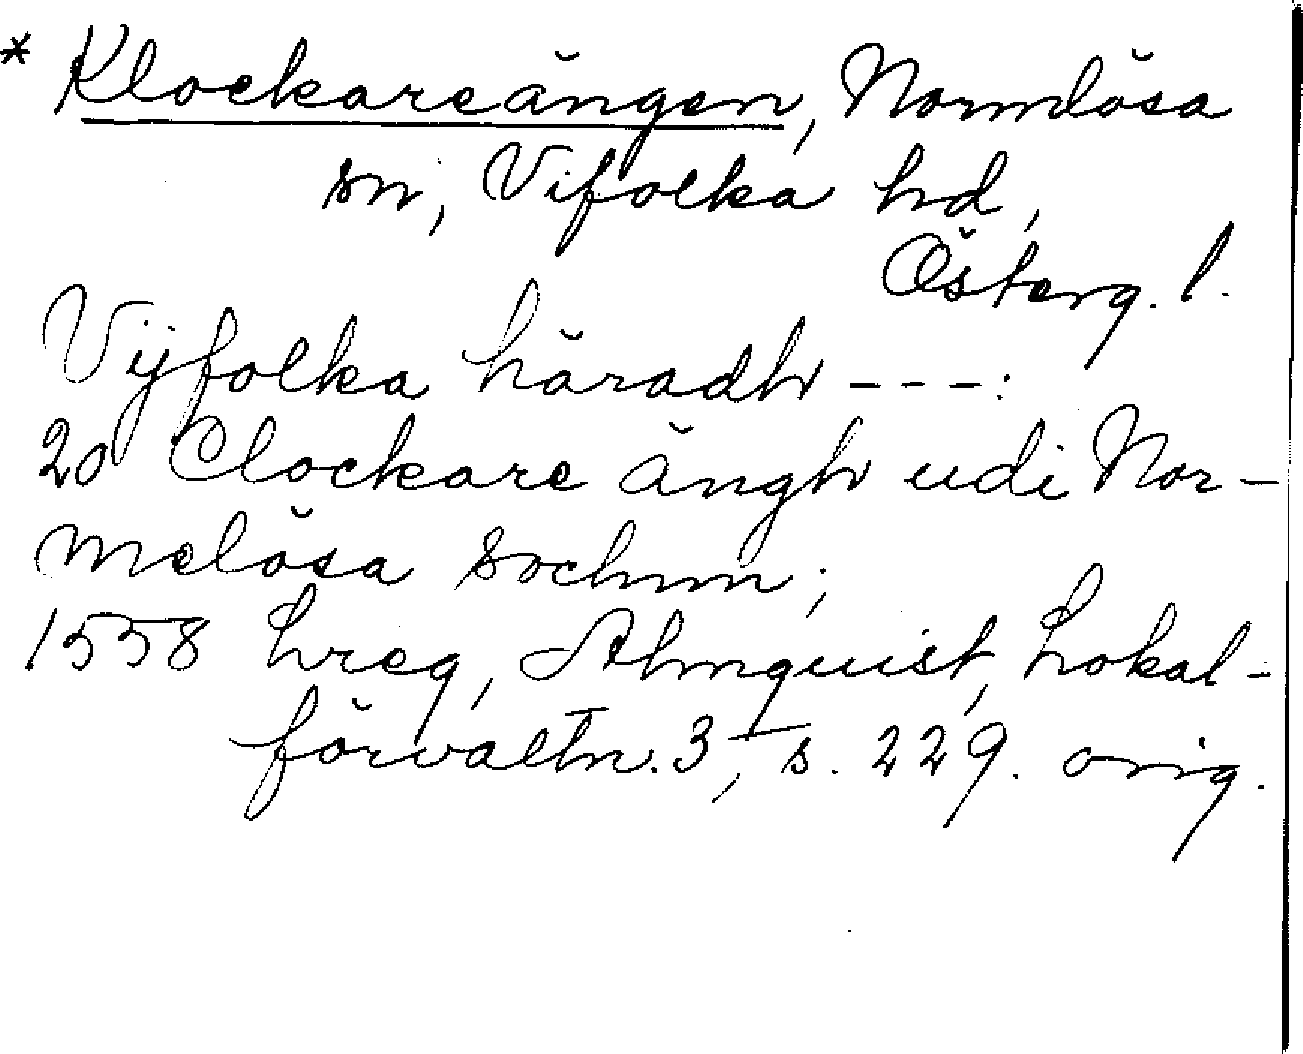 * Klockareängen, Normlösa
sn, Vifolka hd,
Österg. l.
Vijfolka häradh ---:
20 Clockare ängh udi Nor-
melösa sochnn;
1558 hreg, Almquist, Lokal-
förvaltn. 3, s. 229. orig.